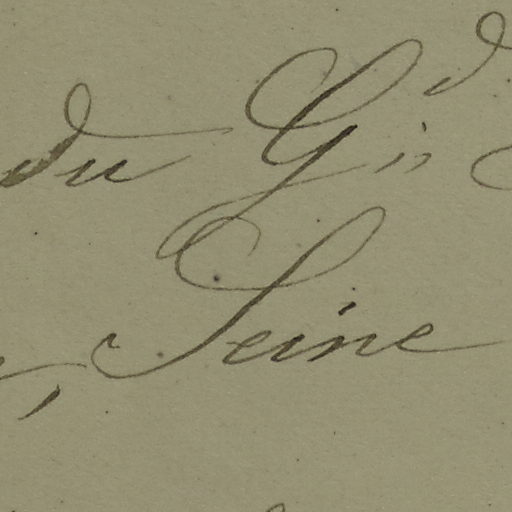 du G.d
, Seine